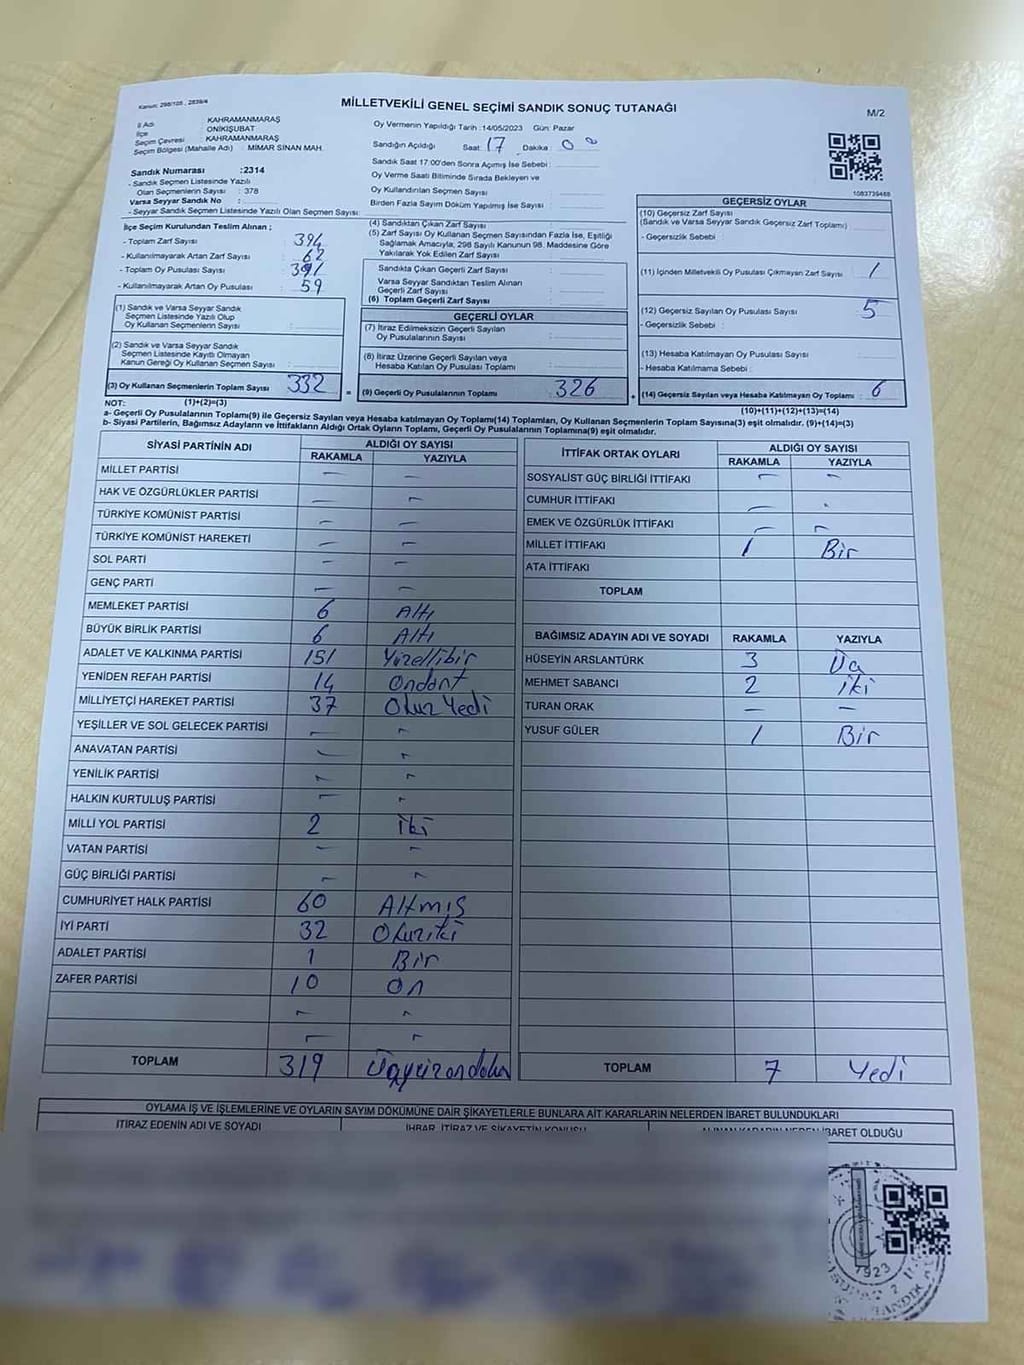 Kanun: 298/105 , 2839/4
MİLLETVEKİLİ GENEL SEÇİMİ SANDIK SONUÇ TUTANAĞI
M/2
İl Adı : KAHRAMANMARAŞ
İlçe : ONİKİŞUBAT
Seçim Çevresi : KAHRAMANMARAŞ
Seçim Bölgesi (Mahalle Adı) : MİMAR SİNAN MAH.
Sandık Numarası :2314
- Sandık Seçmen Listesinde Yazılı
Olan Seçmenlerin Sayısı : 378
Varsa Seyyar Sandık No :
- Seyyar Sandık Seçmen Listesinde Yazılı Olan Seçmen Sayısı:
Oy Vermenin Yapıldığı Tarih :14/05/2023 Gün: Pazar
Sandığın Açıldığı Saat 17 Dakika 00
Sandık Saat 17:00'den Sonra Açılmış İse Sebebi :
Oy Verme Saati Bitiminde Sırada Bekleyen ve
Oy Kullandırılan Seçmen Sayısı :
Birden Fazla Sayım Döküm Yapılmış İse Sayısı :
1083739488
İlçe Seçim Kurulundan Teslim Alınan ;
- Toplam Zarf Sayısı : 394
- Kullanılmayarak Artan Zarf Sayısı : 62
- Toplam Oy Pusulası Sayısı : 391
- Kullanılmayarak Artan Oy Pusulası : 59
(1) Sandık ve Varsa Seyyar Sandık
Seçmen Listesinde Yazılı Olup
Oy Kullanan Seçmenlerin Sayısı :
(2) Sandık ve Varsa Seyyar Sandık
Seçmen Listesinde Kayıtlı Olmayan
Kanun Gereği Oy Kullanan Seçmen Sayısı :
(3) Oy Kullanan Seçmenlerin Toplam Sayısı : 332 =
(4) Sandıktan Çıkan Zarf Sayısı :
(5) Zarf Sayısı Oy Kullanan Seçmen Sayısından Fazla İse, Eşitliği
Sağlamak Amacıyla, 298 Sayılı Kanunun 98. Maddesine Göre
Yakılarak Yok Edilen Zarf Sayısı :
Sandıkta Çıkan Geçerli Zarf Sayısı :
Varsa Seyyar Sandıktan Teslim Alınan
Geçerli Zarf Sayısı :
(6) Toplam Geçerli Zarf Sayısı :
GEÇERLİ OYLAR
(7) İtiraz Edilmeksizin Geçerli Sayılan
Oy Pusulalarının Sayısı :
(8) İtiraz Üzerine Geçerli Sayılan veya
Hesaba Katılan Oy Pusulası Toplamı :
(9) Geçerli Oy Pusulalarının Toplamı : 326 +
GEÇERSİZ OYLAR
(10) Geçersiz Zarf Sayısı
(Sandık ve Varsa Seyyar Sandık Geçersiz Zarf Toplamı) :
- Geçersizlik Sebebi :
(11) İçinden Milletvekili Oy Pusulası Çıkmayan Zarf Sayısı : 1
(12) Geçersiz Sayılan Oy Pusulası Sayısı : 5
- Geçersizlik Sebebi :
(13) Hesaba Katılmayan Oy Pusulası Sayısı :
- Hesaba Katılmama Sebebi :
(14) Geçersiz Sayılan veya Hesaba Katılmayan Oy Toplamı : 6
NOT: (1)+(2)=(3) (10)+(11)+(12)+(13)=(14)
a- Geçerli Oy Pusulalarının Toplamı(9) ile Geçersiz Sayılan veya Hesaba katılmayan Oy Toplamı(14) Toplamları, Oy Kullanan Seçmenlerin Toplam Sayısına(3) eşit olmalıdır. (9)+(14)=(3)
b- Siyasi Partilerin, Bağımsız Adayların ve İttifakların Aldığı Ortak Oyların Toplamı, Geçerli Oy Pusulalarının Toplamına(9) eşit olmalıdır.
SİYASİ PARTİNİN ADI ALDIĞI OY SAYISI
RAKAMLA YAZIYLA
MİLLET PARTİSİ – –
HAK VE ÖZGÜRLÜKLER PARTİSİ – –
TÜRKİYE KOMÜNİST PARTİSİ – –
TÜRKİYE KOMÜNİST HAREKETİ – –
SOL PARTİ – –
GENÇ PARTİ – –
MEMLEKET PARTİSİ 6 Altı
BÜYÜK BİRLİK PARTİSİ 6 Altı
ADALET VE KALKINMA PARTİSİ 151 Yüzellibir
YENİDEN REFAH PARTİSİ 14 Ondört
MİLLİYETÇİ HAREKET PARTİSİ 37 Otuz Yedi
YEŞİLLER VE SOL GELECEK PARTİSİ – –
ANAVATAN PARTİSİ – –
YENİLİK PARTİSİ – –
HALKIN KURTULUŞ PARTİSİ – –
MİLLİ YOL PARTİSİ 2 İki
VATAN PARTİSİ – –
GÜÇ BİRLİĞİ PARTİSİ – –
CUMHURİYET HALK PARTİSİ 60 Altmış
İYİ PARTİ 32 Otuziki
ADALET PARTİSİ 1 Bir
ZAFER PARTİSİ 10 On
– –
– –
TOPLAM 319 Üçyüzondokuz
İTTİFAK ORTAK OYLARI ALDIĞI OY SAYISI
RAKAMLA YAZIYLA
SOSYALİST GÜÇ BİRLİĞİ İTTİFAKI – –
CUMHUR İTTİFAKI – -
EMEK VE ÖZGÜRLÜK İTTİFAKI – –
MİLLET İTTİFAKI 1 Bir
ATA İTTİFAKI
TOPLAM
BAĞIMSIZ ADAYIN ADI VE SOYADI RAKAMLA YAZIYLA
HÜSEYİN ARSLANTÜRK 3 Üç
MEHMET SABANCI 2 iki
TURAN ORAK – –
YUSUF GÜLER 1 Bir
TOPLAM 7 Yedi
OYLAMA İŞ VE İŞLEMLERİNE VE OYLARIN SAYIM DÖKÜMÜNE DAİR ŞİKAYETLERLE BUNLARA AİT KARARLARIN NELERDEN İBARET BULUNDUKLARI
İTİRAZ EDENİN ADI VE SOYADI İHBAR, İTİRAZ VE ŞİKAYETİN KONUSU ALINAN KARARIN NEDEN İBARET OLDUĞU
1923